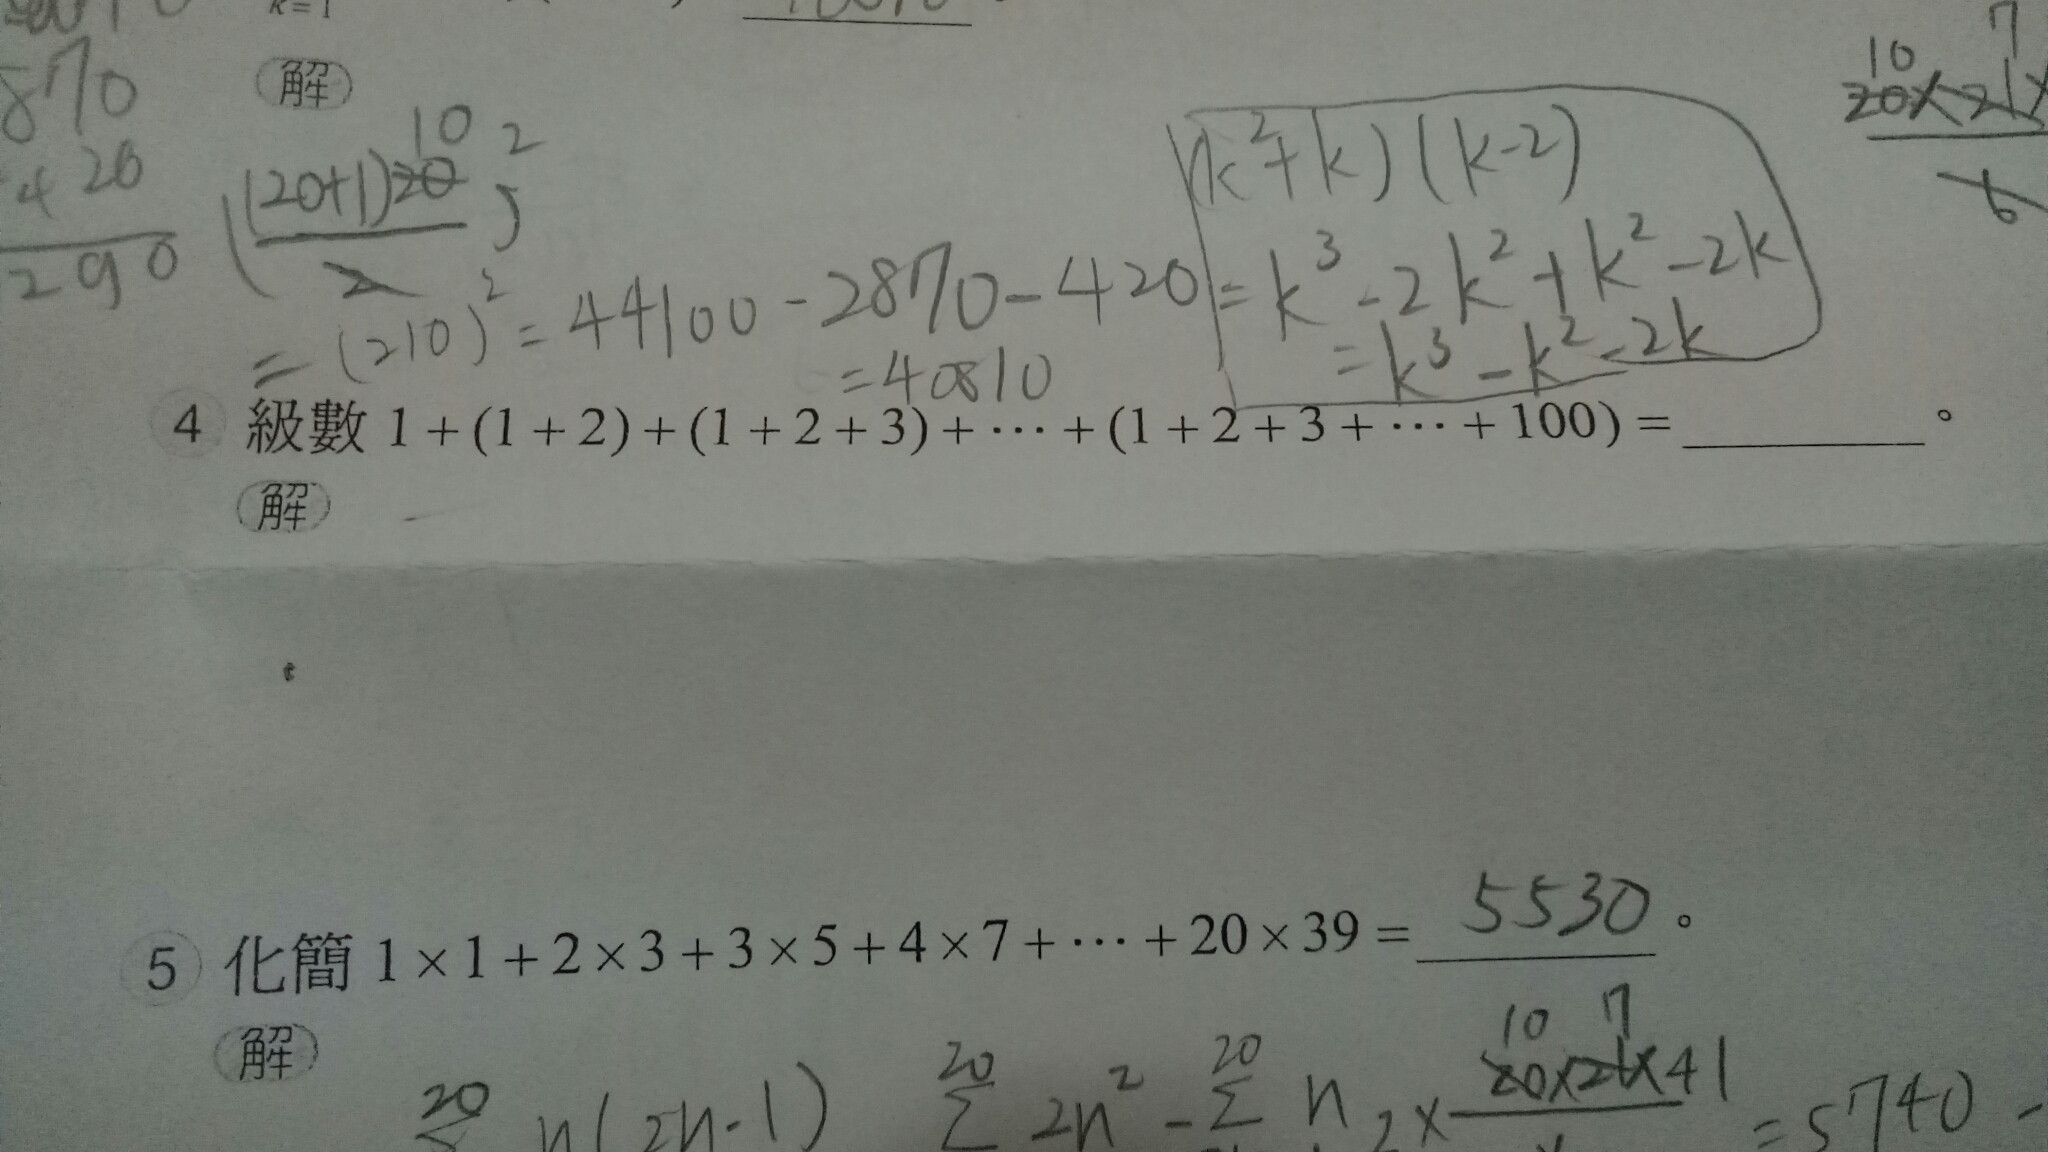 k=1
解
870
420
290
10
((20+1)20)²
2
=(210)²=44100-2870-420
=40810
(k²+k)(k-2)
=k³-2k²+k²-2k
=k³-k²-2k
10 7
20×21×
6
4 級數 1+(1+2)+(1+2+3)+⋯+(1+2+3+⋯+100)=________。
解
5 化簡 1×1+2×3+3×5+4×7+⋯+20×39=5530。
解
10 7
20 n(2n-1) 20 Σ 2n² - 20 Σ n 2× 20×21×41 =5740-